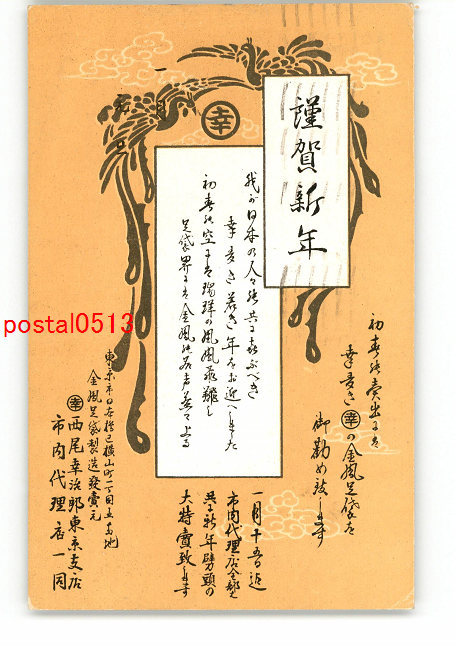 謹賀新年
幸
一月
元旦
我が日本の人々と共に喜ぶべき
幸多き若き年をお迎へしました
初春の空には瑞祥の鳳凰飛翔し
足袋界には金鳳の名声益々上る
初春の売出には
幸多き幸の金鳳足袋を
御勧め致します
一月十五日迄
市内代理店全部と
共に新年劈頭の
大特賣致します
東京市日本橋区横山町一丁目五番地
金鳳足袋製造發賣元
幸 西尾幸治郎東京支店
市内代理店一同
postal0513